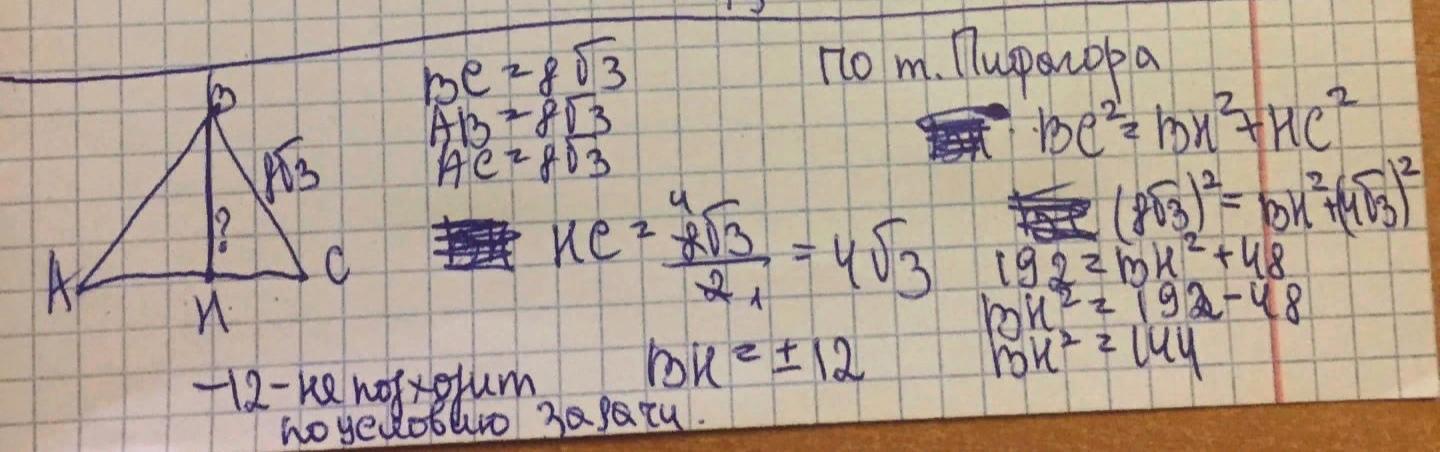 B
8√3
?
A
C
H
BC = 8√3
AB = 8√3
AC = 8√3
HC = 8√3/2 = 4√3
4
1
По т. Пифагора
BC² = BH² + HC²
(8√3)² = BH² + (4√3)²
192 = BH² + 48
BH² = 192 - 48
BH² = 144
BH = ± 12
-12 - не подходит
по условию задачи.